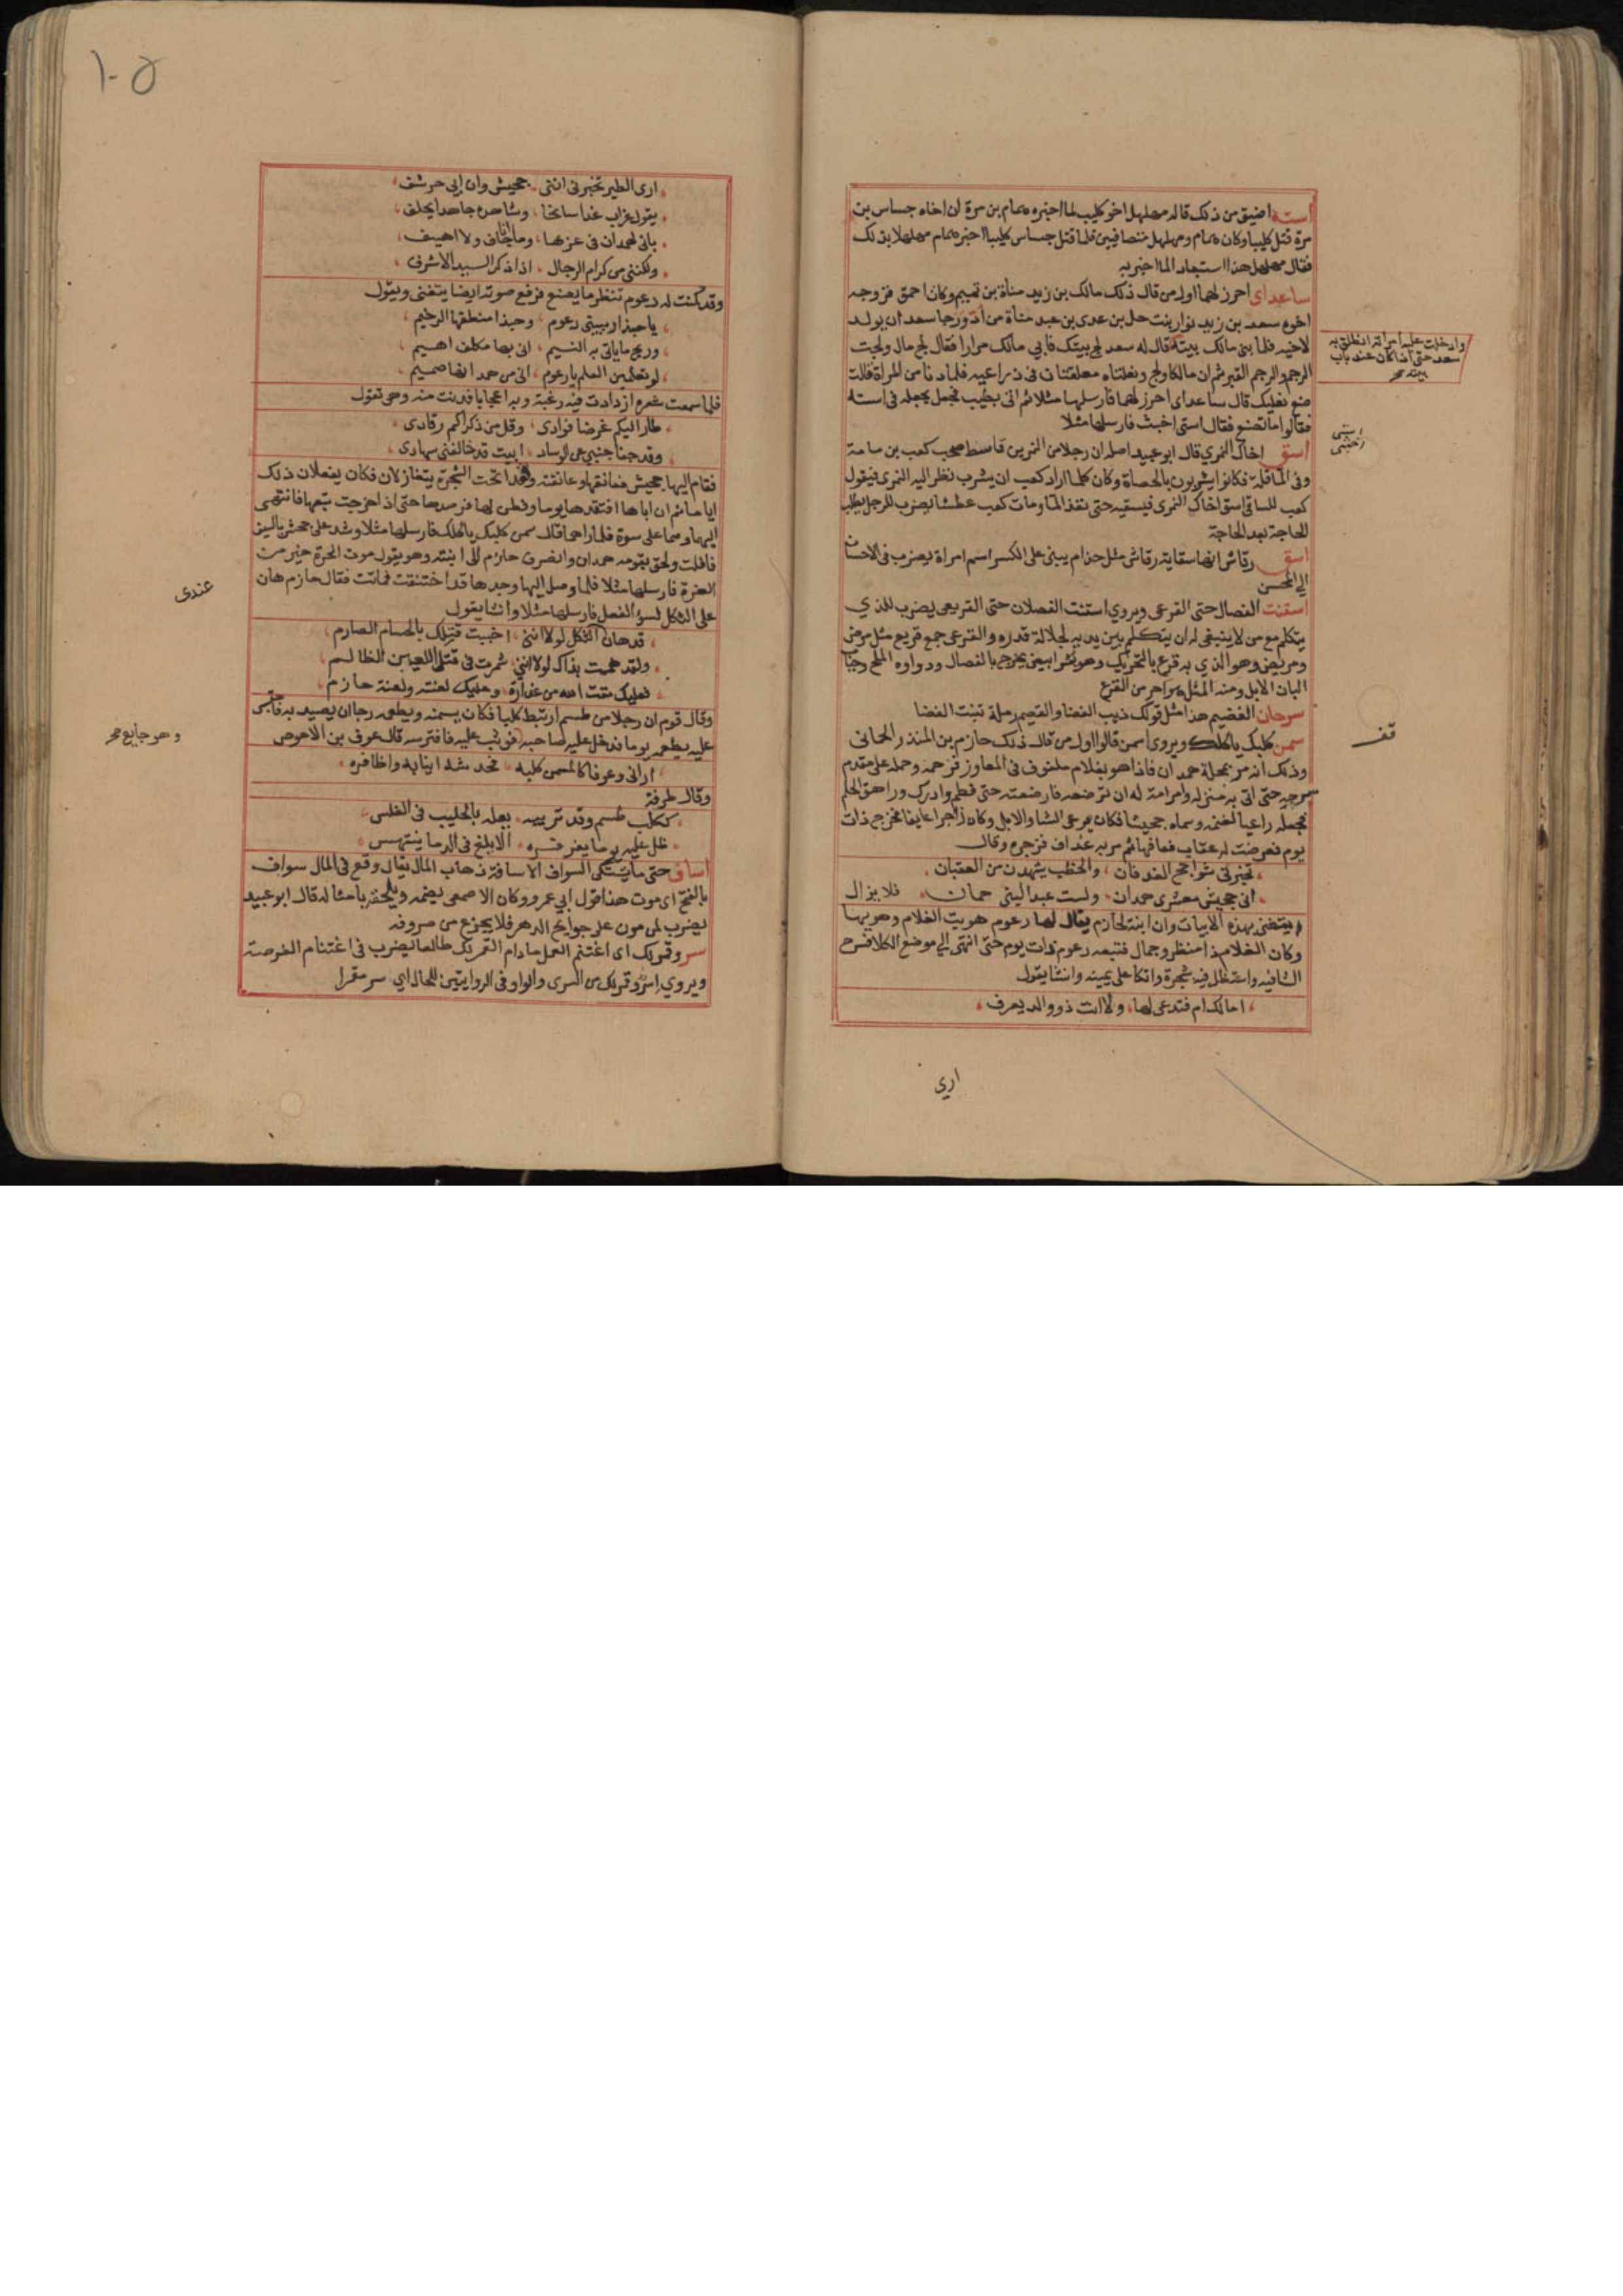 استه اضيق من ذلك قاله مهلهل اخو كليب لما اخبره همام بن مرة ان اخاه جساس بن
مرة قتل كليبا وكان همام ومهلهل متصافيين فلما قتل جساس كليبا اخبر همام مهلهلا بذلك
فقال مهلهل هذا استبعادا لما اخبر به
ساعداى احرز لهما اول من قال ذلك مالك بن زيد مناة بن تميم وكان احمق فزوجه
اخوه سعد بن زيد نوار بنت حل بن عدى بن عبد مناة من اد ورجا سعد ان يولد
لاخيه فلما بنى مالك بيته قال له سعد لج بيتك فابي مالك مرارا فقال لج مال ولجت
الرجم والرجم القبر ثم ان مالكا ولج ونعلاه معلقتان فى ذراعيه فلما دنا من المراة قالت
ضع نعليك قال ساعداى احرز لهما فارسلها مثلا ثم اتى بطيب فجعل يجعله فى استه
فقالوا ما تصنع فقال استى اخبث فارسلها مثلا
وادخلت عليه امراته انطلق به
سعد حتى اذا كان عند باب
بيته صح
استى
اخبثى
اسق اخاك النمري قال ابو عبيد اصله ان رجلا من النمر بن قاسط صحب كعب بن مامة
وفى الما قلة فكانوا يشربون بالحصاة وكان كلما اراد كعب ان يشرب نظر اليه النمرى فيقول
كعب للساقى اسق اخاك النمرى فيسقيه حتى نفذ الما ومات كعب عطشا يضرب للرجل يطلب
الحاجة بعد الحاجة
اسق رقاش انها سقاية رقاش مثل حذام يبنى على الكسر اسم امراة يضرب فى الاحسان
الي المحسن
استنت الفصال حتى القرعى ويروي استنت الفصلان حتى القريعى يضرب للذي
يتكلم مع من لا ينبغى له ان يتكلم بين يديه لجلالة قدره والقرعى جمع قريع مثل مرضى
ومريض وهو الذي به قرع بالتحريك وهو بثر ابيض يخرج بالفصال ودواوه الملح وجباب
البان الابل ومنه المثل هو احر من القرع
سرحان القصيم هذا مثل قولك ذيب الغضا والقصيم رملة تنبت الغضا
سمن كلبك ياكلك ويروى اسمن قالوا اول من قال ذلك حازم بن المنذر الحمانى
وذلك انه مر بمحلة همدان فاذا هو بغلام ملفوف فى المعاوز فرحمه وحمله على مقدم
سرجه حتى اتى به منزله وامر امة له ان ترضعه فارضعته حتى فطم وادرك وراهق الحلم
فجعله راعيا لغنمه وسماه جحيشا فكان يرعى الشا والابل وكان زاجرا عايفا فخرج ذات
يوم فعرضت له عقاب فعافها ثم مر به غداف فزجره وقال
تخبرنى شواحج الغدفان ، والخطب يشهدن من العقبان
انى جحيش معشرى همدان ، ولست عبدا لبنى حمان فلا يزال
يتغنى بهذه الابيات وان ابنة لحازم يقال لها رعوم هويت الغلام وهويها
وكان الغلام ذا منظر وجمال فتبعه رعوم ذات يوم حتى انتهى الي موضع الكلا فسرح
الشا فيه واستظل فى شجرة واتكا على يمينه وانشا يقول
امالك ام فتدعى لها ، ولا انت ذو والد يعرف
قف
ارى
١٠٥
ارى الطير تخبرنى اننى ، جحيش وان ابى حرشف
يقول غراب غدا سانحا ، وشاهده جاهدا يحلف
بانى لهمدان فى عزها ، وما جاف ولا اهيف
ولكننى من كرام الرجال ، اذا ذكر السيد الاشرف
وقد كمنت له رعوم تنظر ما يصنع فرفع صوته ايضا يتغنى ويقول
يا حبذا ربيبتى رعوم ، وحبذا منطقها الرخيم
وريح ما ياتى به النسيم ، انى بها مكلف اهيم
لو تعلمين العلم يا رعوم ، انى من همدانها صميم
فلما سمعت شعره ازدادت فيه رغبة وبه اعجابا فدنت منه وهى تقول
طار اليكم غرضا فوادى ، وقل من ذكراكم رقادى
وقد جفا جنبى عن الوساد ، ابيت قد حالفنى سهادى
فقام اليها جحيش فعانقها وعانقته وقعدا تحت الشجرة يتغازلان فكان يفعلان ذلك
اياما ثم ان اباها افتقدها يوما وفطن لها فرصدها حتى اذا خرجت تبعها فانتهى
اليها وهما على سوة فلما راهما قال سمن كلبك ياكلك فارسلها مثلا وشد على جحيش بالسيف
فافلت ولحق بقومه همدان وانصرف حازم الى ابنته وهو يقول موت الحرة خير من
العرة فارسلها مثلا فلما وصل اليها وجدها قد اختنقت فماتت فقال حازم هان
على الثكل لسوء الفعل فارسلها مثلا وانشا يقول
عندى
قد هان الثكل لولا اننى ، اخببت قتلك بالحسام الصارم
ولقد هممت بذاك لولا اننى ، شمرت فى قتل اللعين الظالم
فعليك مقت الله من غدارة ، وعليك لعنته ولعنة حازم
وقال قوم ان رجلا من طسم ارتبط كلبا فكان يسمنه ويطعمه رجا ان يصيد به فاحتبس
عليه بطعمه يوما فدخل عليه صاحبه فوثب عليه فافترسه قال عوف بن الاحوص
وهو جايع صح
ارانى وعوفا كالمسمن كلبه ، فخدشه انيابه واظافره
وقال طرفة
ككلب طسم وقد تربيه ، يعله بالحليب فى الغلس
ظل عليه يوما يفرفره ، الا يلغ فى الدما ينتهس
اساف حتى ما يشتكى السواف الاسافة ذهاب المال يقال وقع فى المال سواف
بالفتح اى موت هذا قول ابي عمرو وكان الاصمعى يضمه ويلحقه بامثاله قال ابو عبيد
يضرب لمن مرن على جوايح الدهر فلا يجزع من صروفه
سر وقمر لك اى اغتنم العمل ما دام القمر لك طالعا يضرب فى اغتنام الفرصة
ويروي اسر وقمر لك من السرى والواو فى الروايتين للحال اي سر مقمرا